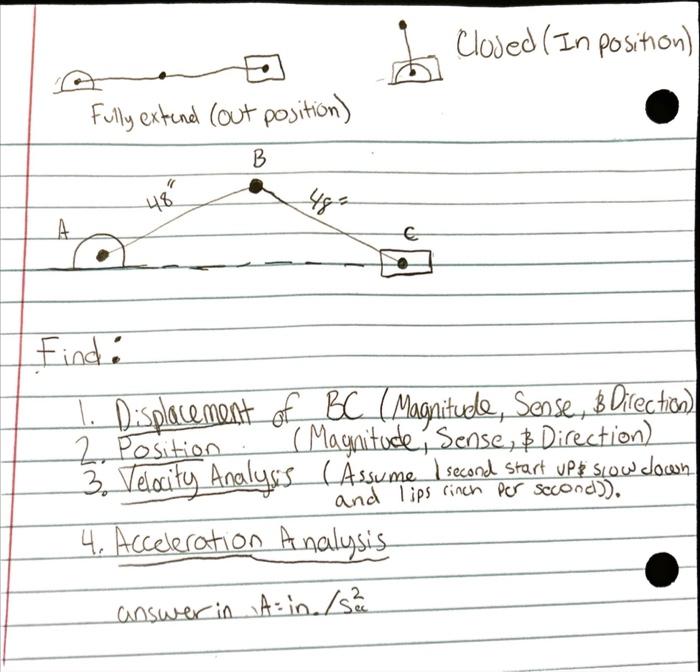 Closed (In position)
Fully extend (out position)
B
48"
48=
A
C
Find:
1. Displacement of BC (Magnitude, Sense, & Direction)
2. Position (Magnitude, Sense, & Direction)
3. Velocity Analysis (Assume 1 second start up & slow down
and 1 ips (inch per second)).
4. Acceleration Analysis
answer in A=in./Sec²